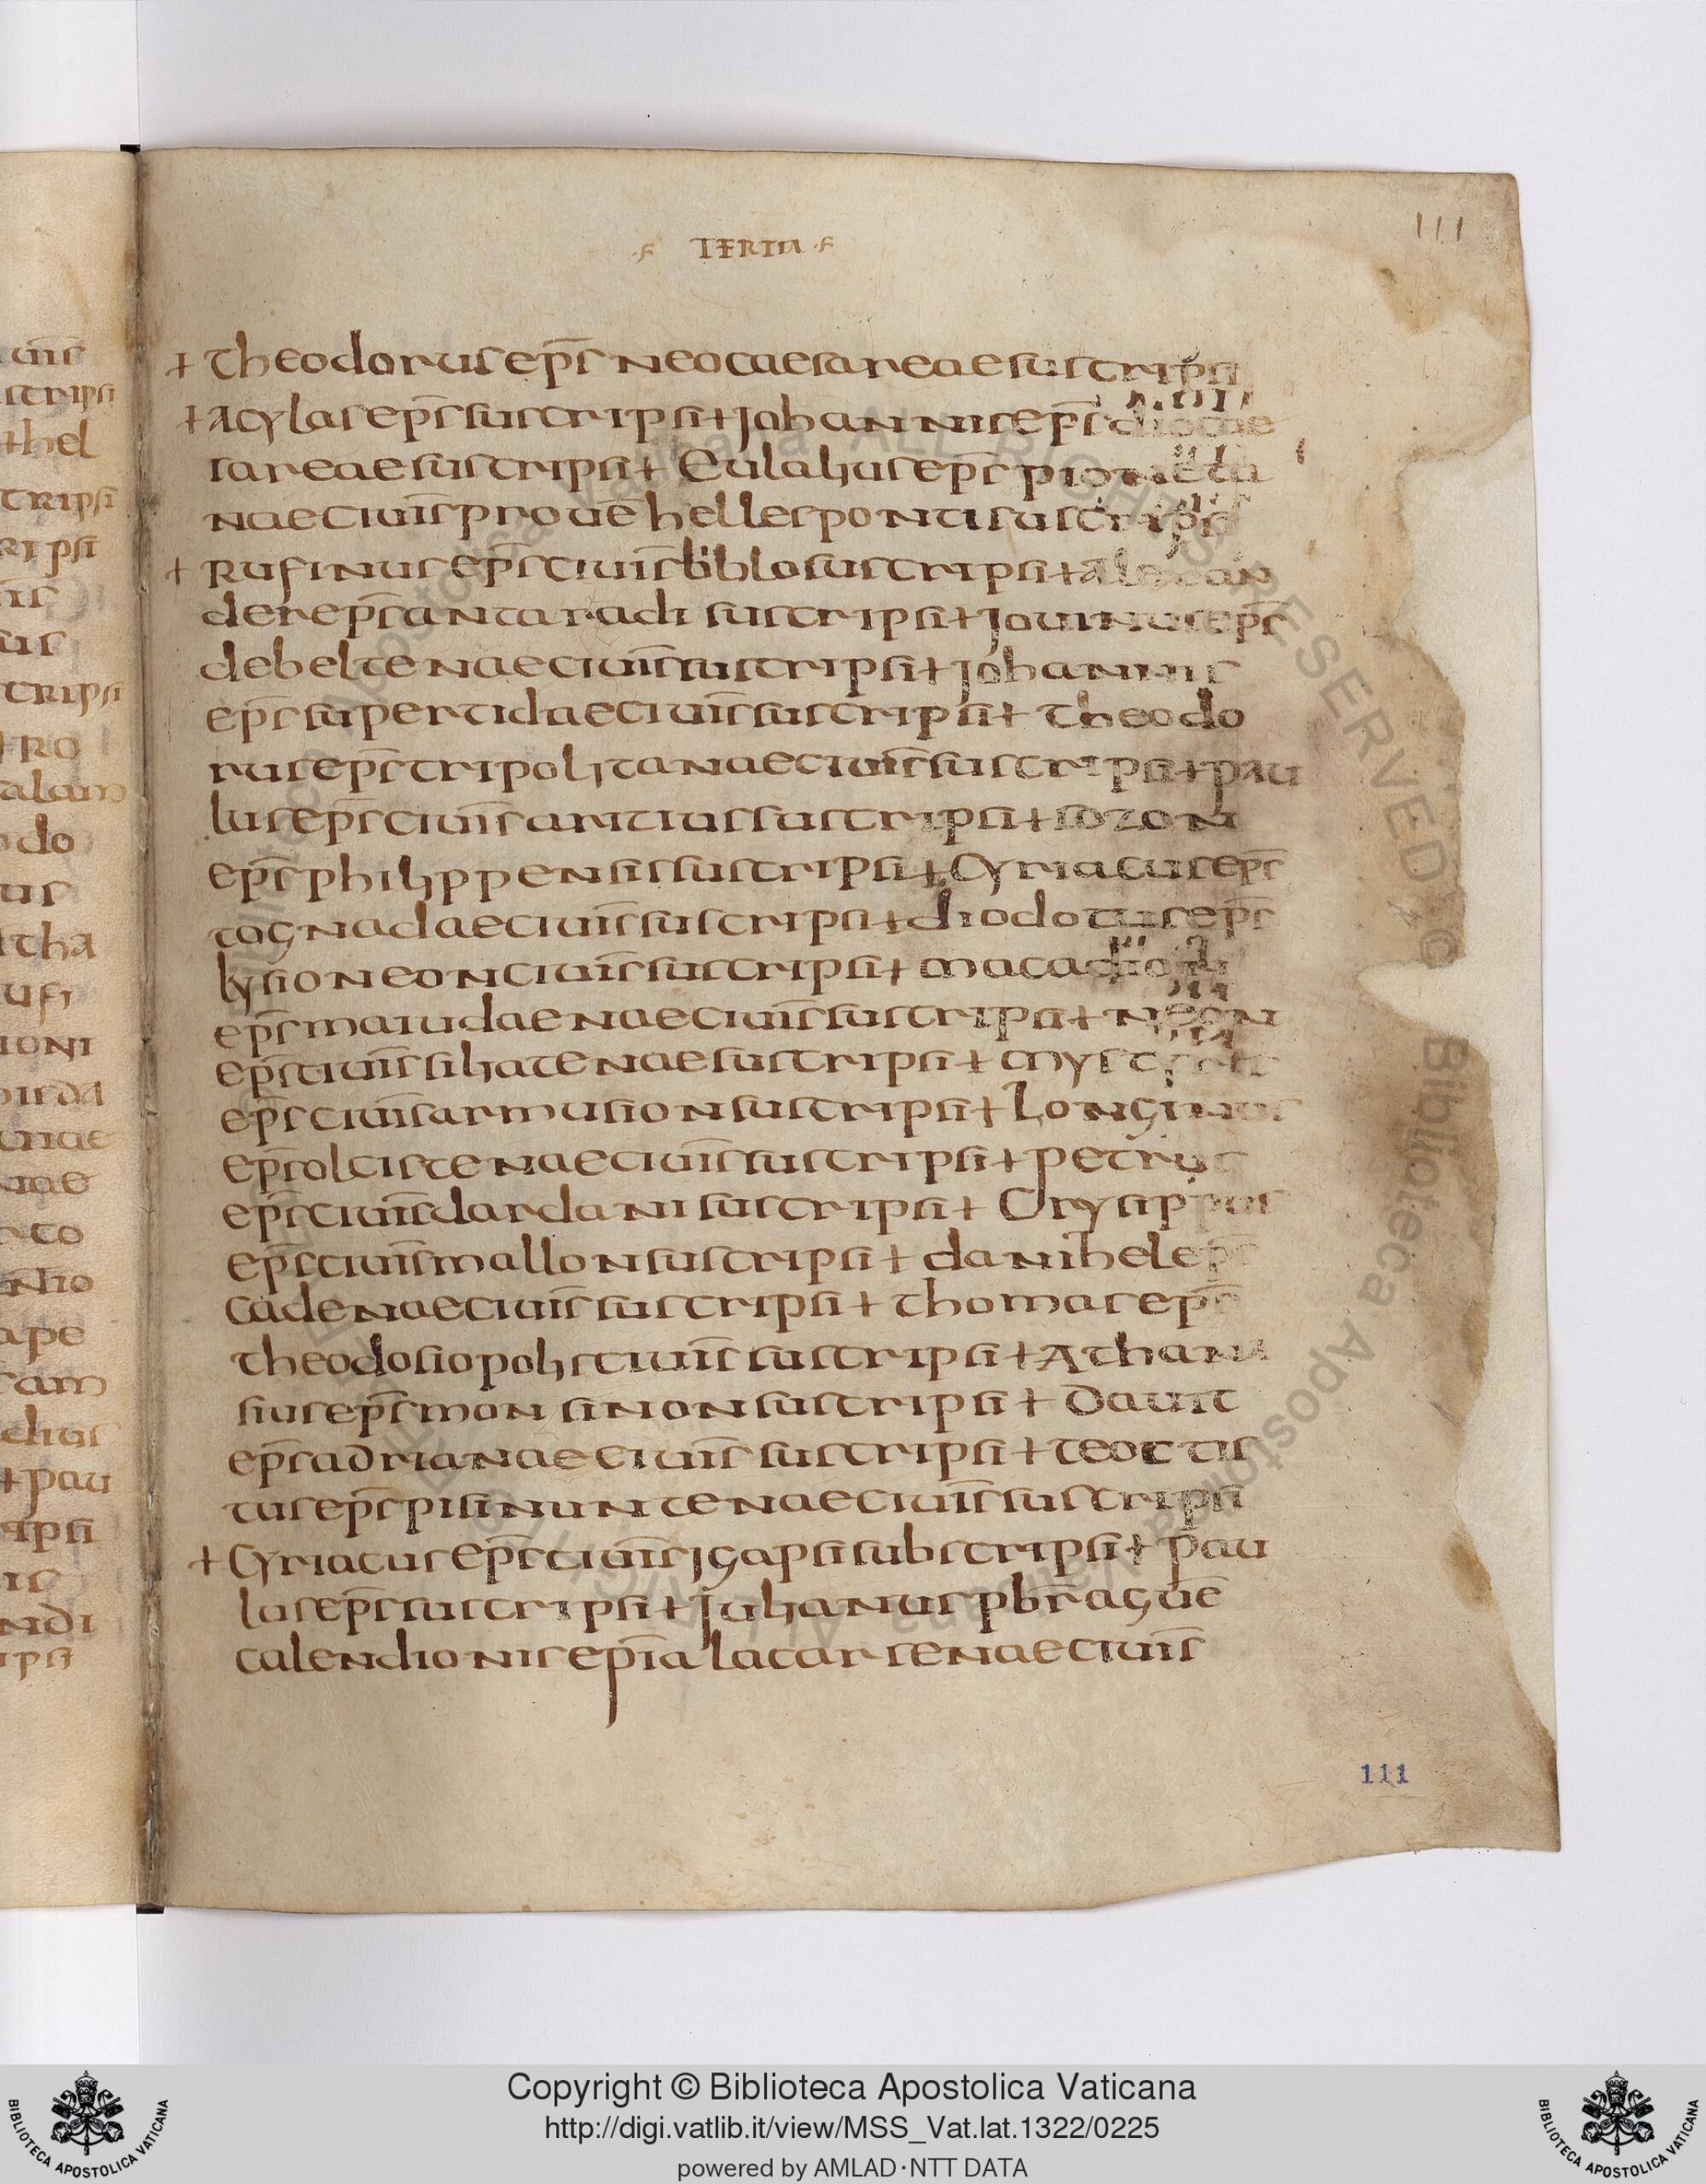 111
TERTIA
+ theodorus ep̄s neocaesareae suscripsi
+ acylas ep̄s suscripsi + johannis ep̄s diocae
sareae suscripsi + eulalius ep̄s pioneta
nae ciuīs prouē hellesponti suscripsi
+ rufinus ep̄s ciuīs biblo suscripsi + alexan
der ep̄s antaradi suscripsi + jouinus ep̄s
debeltenae ciuīs suscripsi + johannis
ep̄s supertidae ciuīs suscripsi + theodo
rus ep̄s tripolitanae ciuīs suscripsi + pau
lus ep̄s ciuīs aritius suscripsi + sozon
ep̄s philippensis suscripsi + cyriacus ep̄s
tognadae ciuīs suscripsi + diodotus ep̄s
lysioneon ciuīs suscripsi +
ep̄s maiudaenae ciuīs suscripsi + neon
ep̄s ciuīs siliatenae suscripsi +
ep̄s ciuīs armusion suscripsi + longinus
ep̄s olcistenae ciuīs suscripsi + petrus
ep̄s ciuīs dardani suscripsi + crysippus
ep̄s ciuīs mallon suscripsi + danihel ep̄s
cadenae ciuīs suscripsi + thomas ep̄s
theodosiopolis ciuīs suscripsi + athana
sius ep̄s monsinon suscripsi + dauit
ep̄s adrianae ciuīs suscripsi + teoctis
tus ep̄s pisinuntenae ciuīs suscripsi
+ cyriacus ep̄s ciuīs jgapsi subscripsi + pau
lus ep̄s suscripsi + julianus pb̄r aguē
calendionis ep̄i alacarsenae ciuīs
111
Copyright © Biblioteca Apostolica Vaticana
http://digi.vatlib.it/view/MSS_Vat.lat.1322/0225
powered by AMLAD·NTT DATA